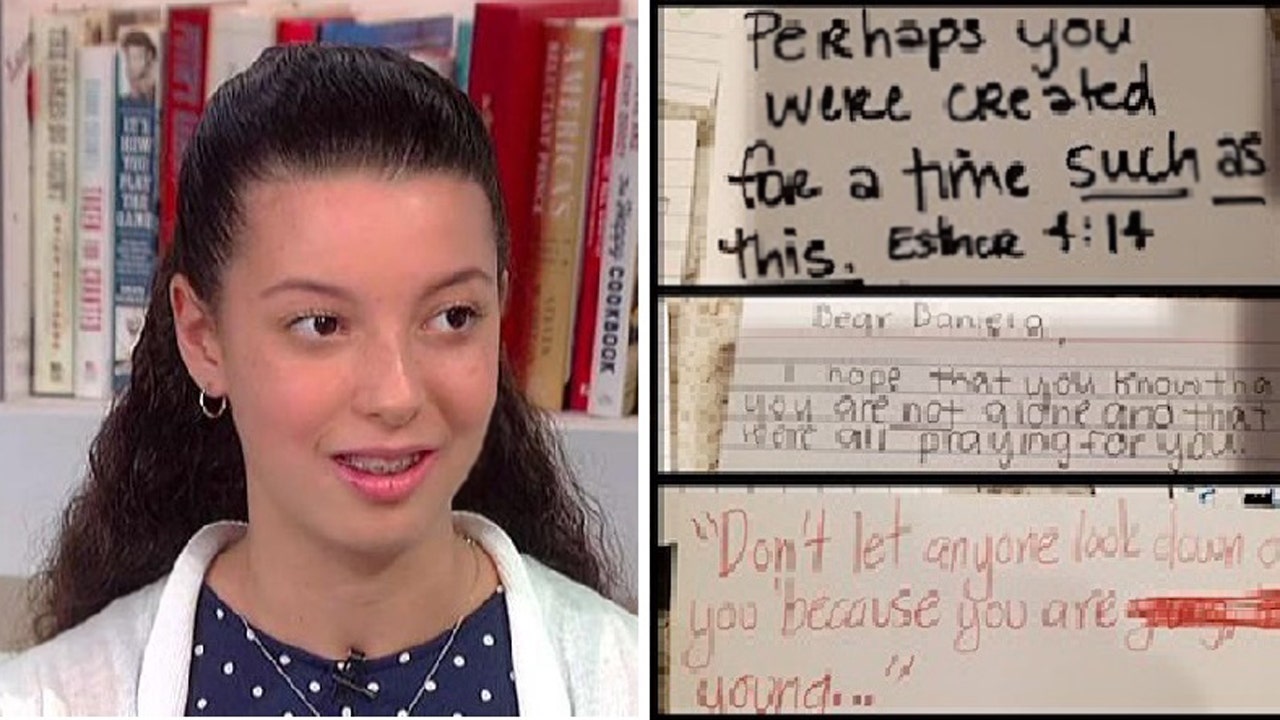 THE GAMES DO COUNT
IT'S
HOW
YOU
PLAY
THE
GAME
AMERICA'S
COOKBOOK
Perhaps you
were created
for a time such as
this. Esther 4:14
Dear Daniela,
I hope that you know tha
you are not alone and that
were all praying for you.
"Don't let anyone look down o
you because you are
young..."